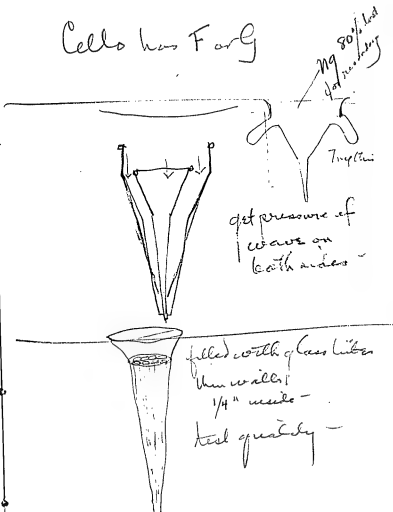 Cello has F or G
Ng 80% lost
for recording
Try this
get pressure of
wave on
both sides -
filled with glass tubes
thin walls
1/4" inside -
test quality -